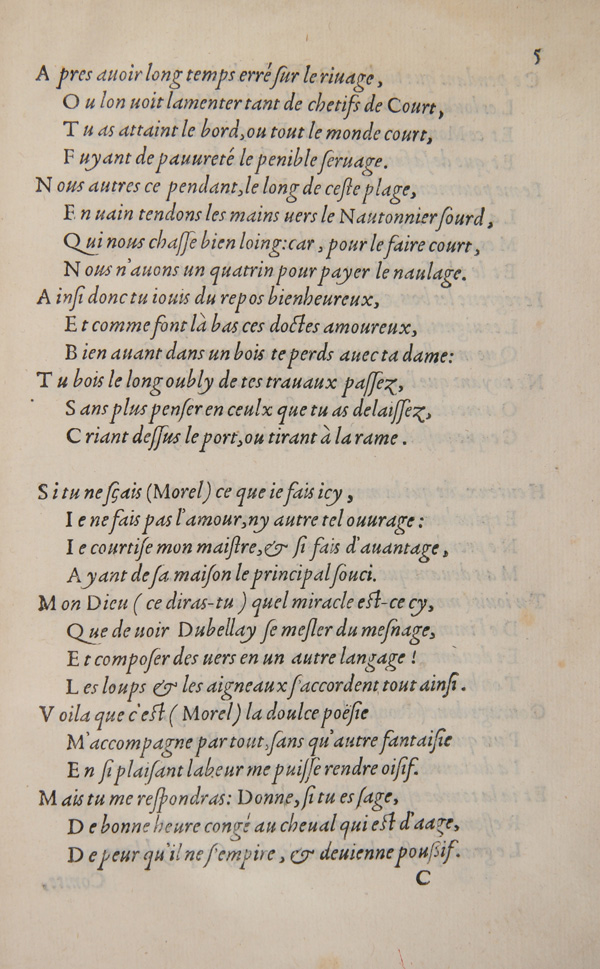 5
Apres auoir long temps erré ſur le riuage,
Ou lon uoit lamenter tant de chetifs de Court,
Tu as attaint le bord, ou tout le monde court,
Fuyant de pauureté le penible ſeruage.
Nous autres ce pendant, le long de ceſte plage,
En uain tendons les mains uers le Nautonnier ſourd,
Qui nous chaſſe bien loing: car, pour le faire court,
Nous n'auons un quatrin pour payer le naulage.
Ainſi donc tu iouis du repos bienheureux,
Et comme font là bas ces doctes amoureux,
Bien auant dans un bois te perds auec ta dame:
Tu bois le long oubly de tes trauaux paſſez,
Sans plus penſer en ceulx que tu as delaiſſez,
Criant deſſus le port, ou tirant à la rame.
Si tu ne ſçais (Morel) ce que ie fais icy,
Ie ne fais pas l'amour, ny autre tel ouurage:
Ie courtiſe mon maiſtre, & ſi fais d'auantage,
Ayant de ſa maiſon le principal ſouci.
Mon Dieu (ce diras-tu) quel miracle eſt-ce cy,
Que de uoir Dubellay ſe meſler du meſnage,
Et compoſer des uers en un autre langage!
Les loups & les aigneaux ſ'accordent tout ainſi.
Voila que c'eſt (Morel) la doulce poëſie
M'accompagne par tout, ſans qu'autre fantaiſie
En ſi plaiſant labeur me puiſſe rendre oiſif.
Mais tu me reſpondras: Donne, ſi tu es ſage,
De bonne heure congé au cheual qui eſt d'aage,
De peur qu'il ne ſ'empire, & deuienne pouſſif.
C